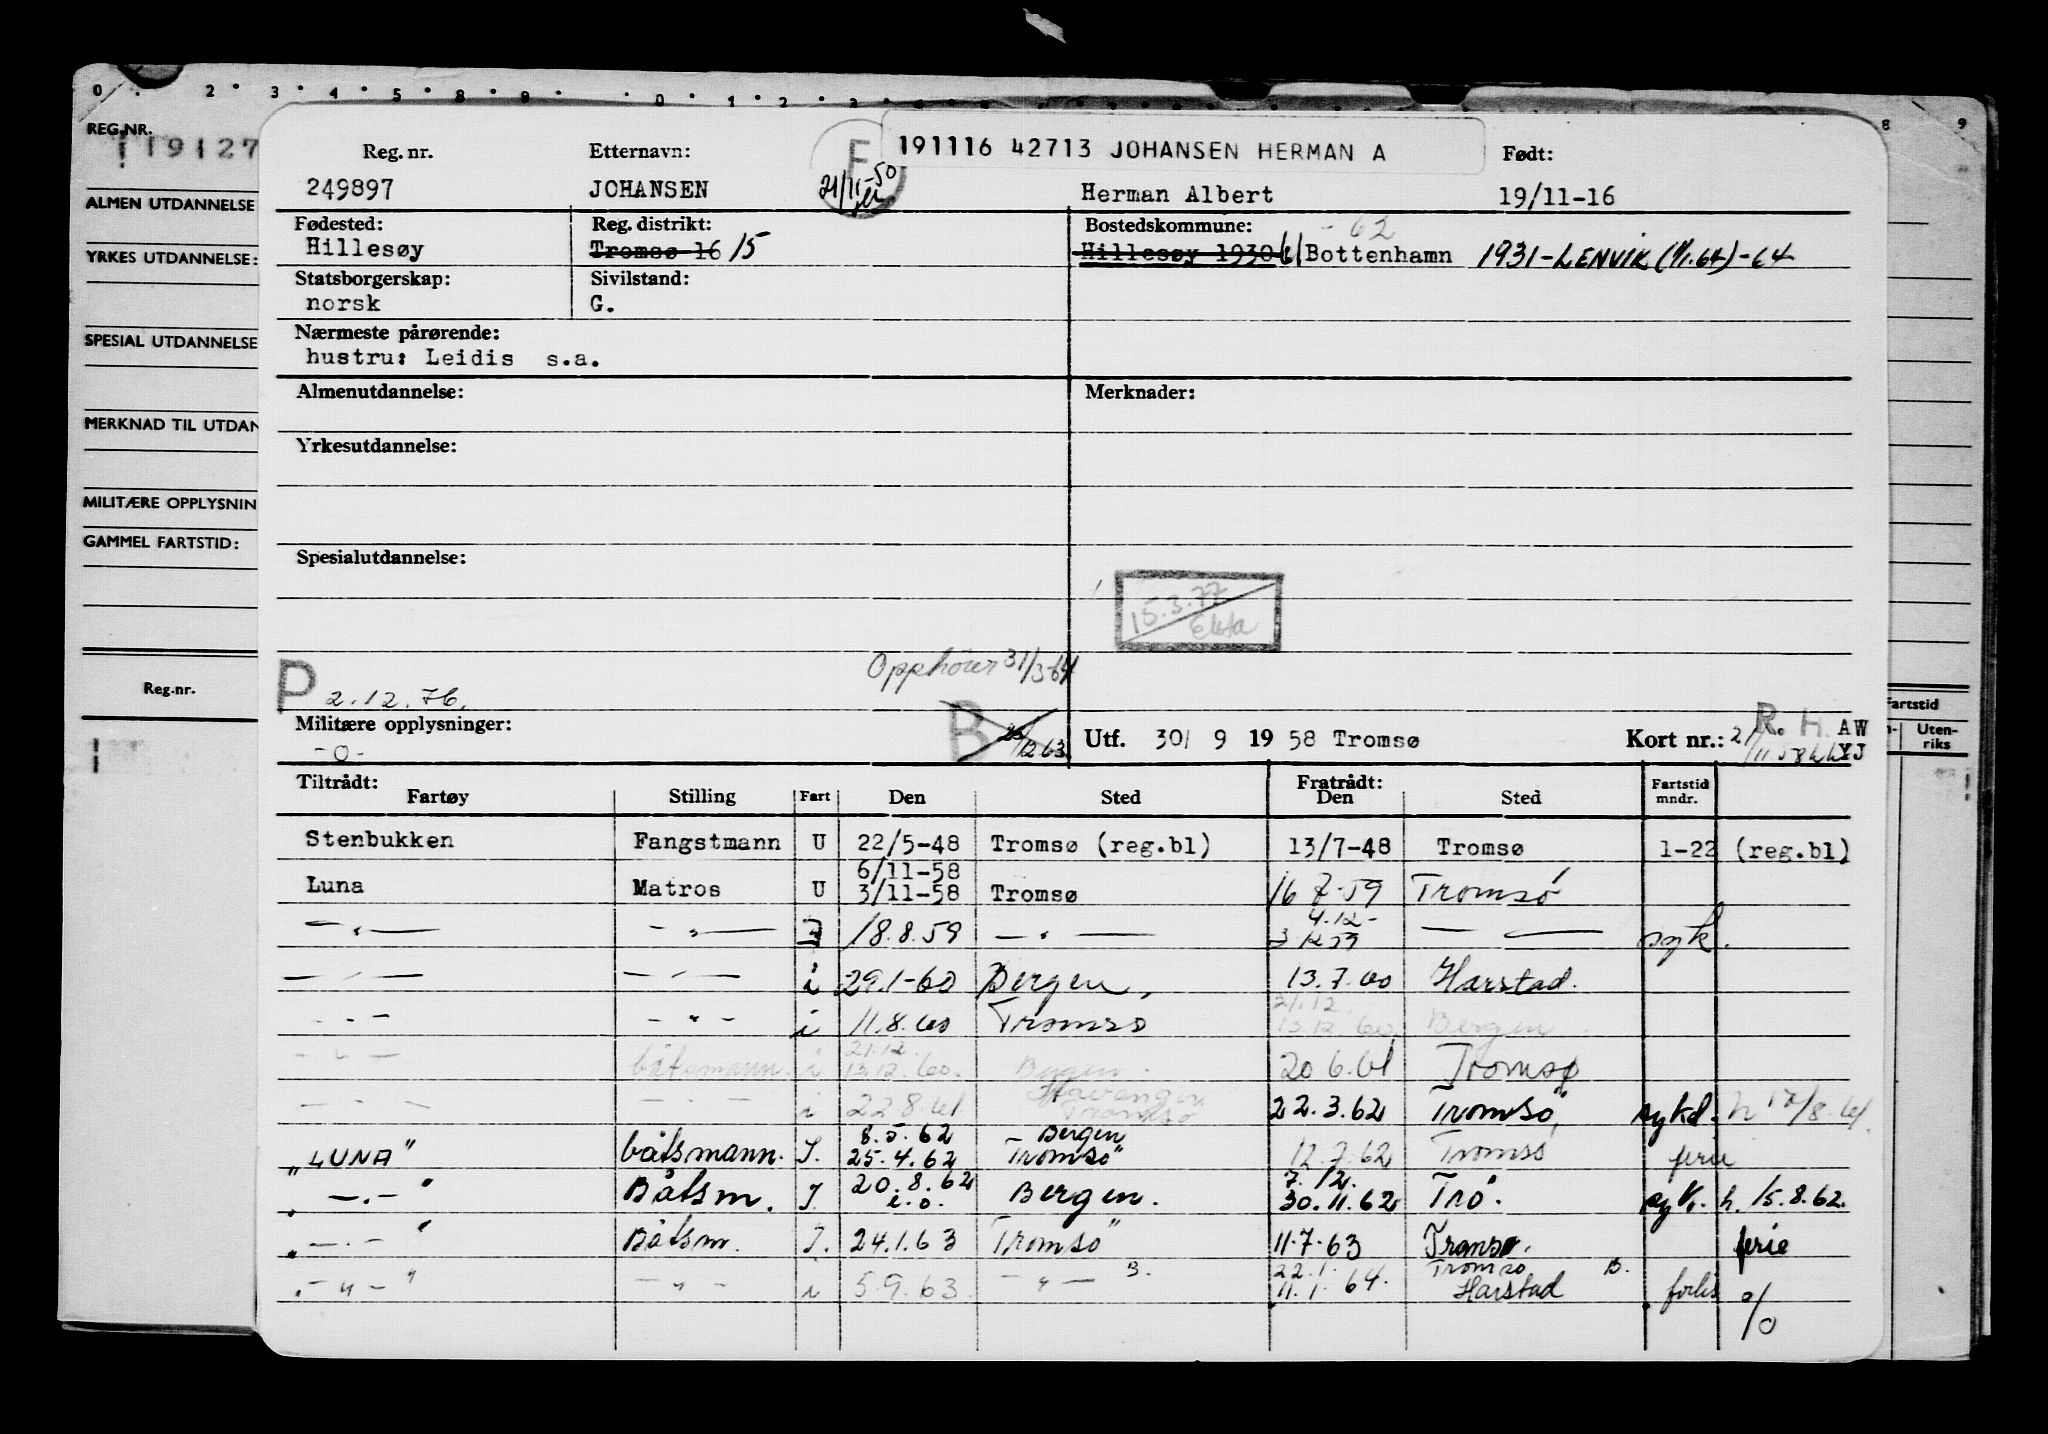 0 . 2 . 3 . 4 . 5 . 8 . 9 . . 0 . 1 . 2 . 3 8 9
REG.NR.
19127
ALMEN UTDANNELSE
YRKES UTDANNELSE:
SPESIAL UTDANNELSE
MERKNAD TIL UTDAN
MILITÆRE OPPLYSNIN
GAMMEL FARTSTID:
Reg.nr.
artstid
Uten-
riks
191116 42713 JOHANSEN HERMAN A
Reg. nr. Etternavn: F Født:
249897 JOHANSEN 21/11-50 Herman Albert 19/11-16
Fødested: Reg. distrikt: Bostedskommune: -62
Hillesøy Tromsø 16 15 Hillesøy 1930 61 Bottenhamn 1931-LENVIK (1/1.64)-64
Statsborgerskap: Sivilstand:
norsk G.
Nærmeste pårørende:
hustru: Leidis s.a.
Almenutdannelse: Merknader:
Yrkesutdannelse:
Spesialutdannelse:
15.3.77
Ekta
P 2.12.76. Opphører 31/3-64
Militære opplysninger: B /12 63 Utf. 30/ 9 19 58 Tromsø Kort nr.: 2/11.58 R. H. AW
-0- YJ
Tiltrådt: Fratrådt:
Fartøy Stilling Fart Den Sted Den Sted Fartstid mndr.
Stenbukken Fangstmann U 22/5-48 Tromsø (reg.bl) 13/7-48 Tromsø 1-22 (reg.bl)
6/11-58
Luna Matros U 3/11-58 Tromsø 16 7-59 Tromsø
4.12-
— " — — " — 18.8.59 — " — 3 12 59 — " — syk.
— " — — " — i 29.1-60 Bergen, 13.7.60 Harstad.
21.12.
- " - - " - i 11.8.60 Tromsø 13.12.60 Bergen
21.12.
- " - båtsmann. i 13.12.60. Bergen. 20.6.61 Tromsø
Stavanger
- " - - " - i 22 8.61 Tromsø 22.3.62 Tromsø, sykd. h 17/8.61.
8.5.62 Bergen
"LUNA" båtsmann. I. 25.4.62 Tromsø 12.7.62 Tromsø ferie
20.8.62 7.12.
" -.- " Båtsm. I. i.o. Bergen. 30.11.62 Trø. syk. h. 15.8.62.
" -.- " Båtsm. I. 24.1.63 Tromsø 11.7.63 Tromsø. ferie
22.1. Tromsø B.
" - " - " - " - i 5.9.63. - " - B. 11.1.64. Harstad forlis %